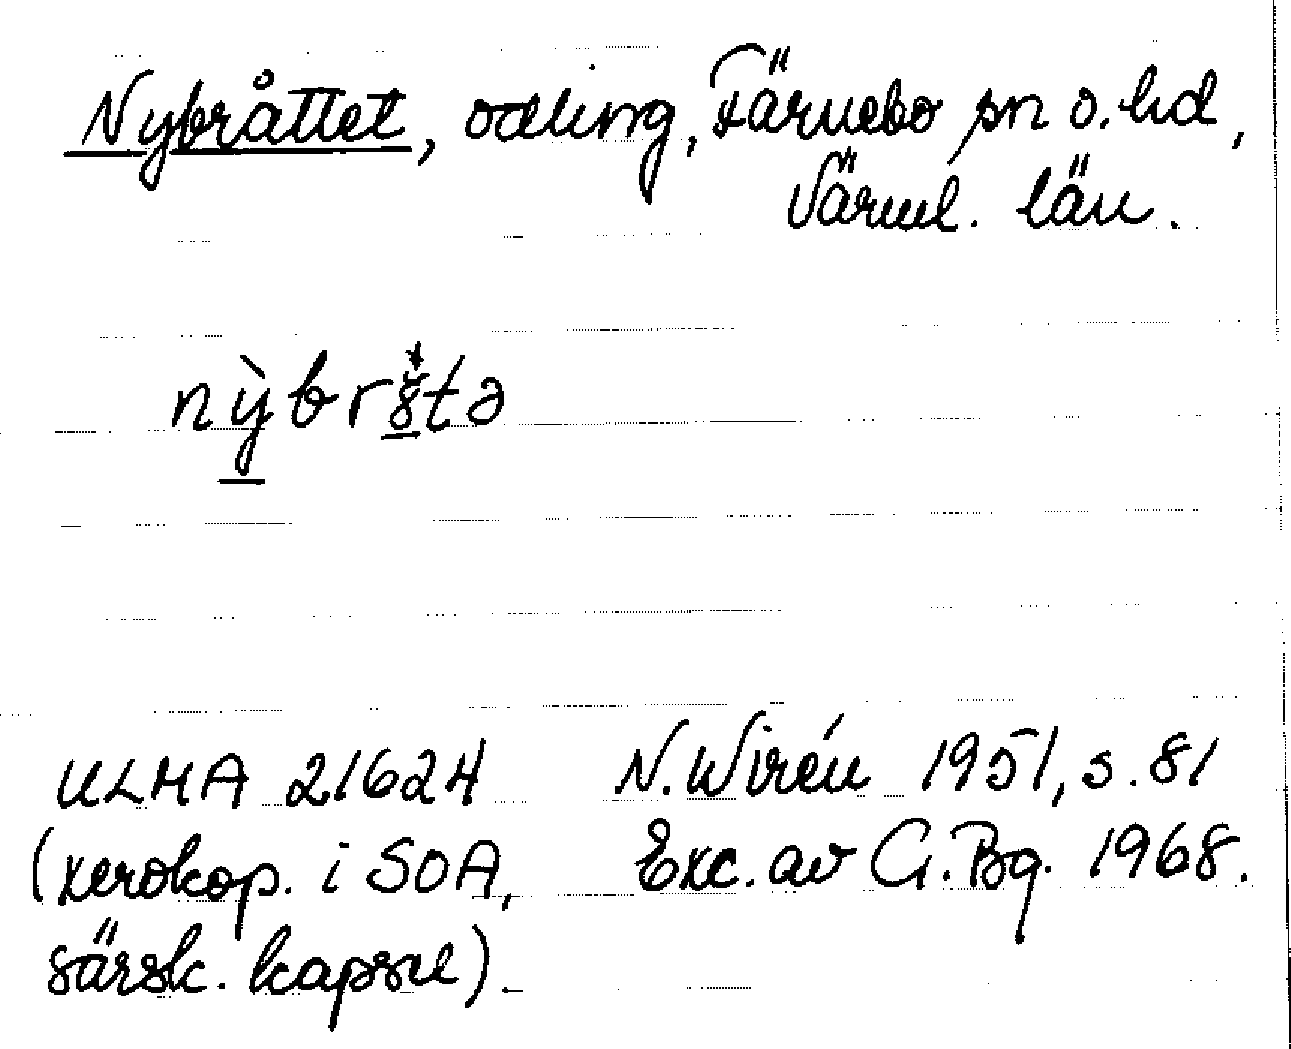 Nybråttet, odling, Färnebo sn o. hd,
Värml. län.
nỳbr tə
ULMA 21624 N. Wirén 1951, s. 81
(xerokop. i SOA, Exc. av G. Bg. 1968.
särsk. kapsel)